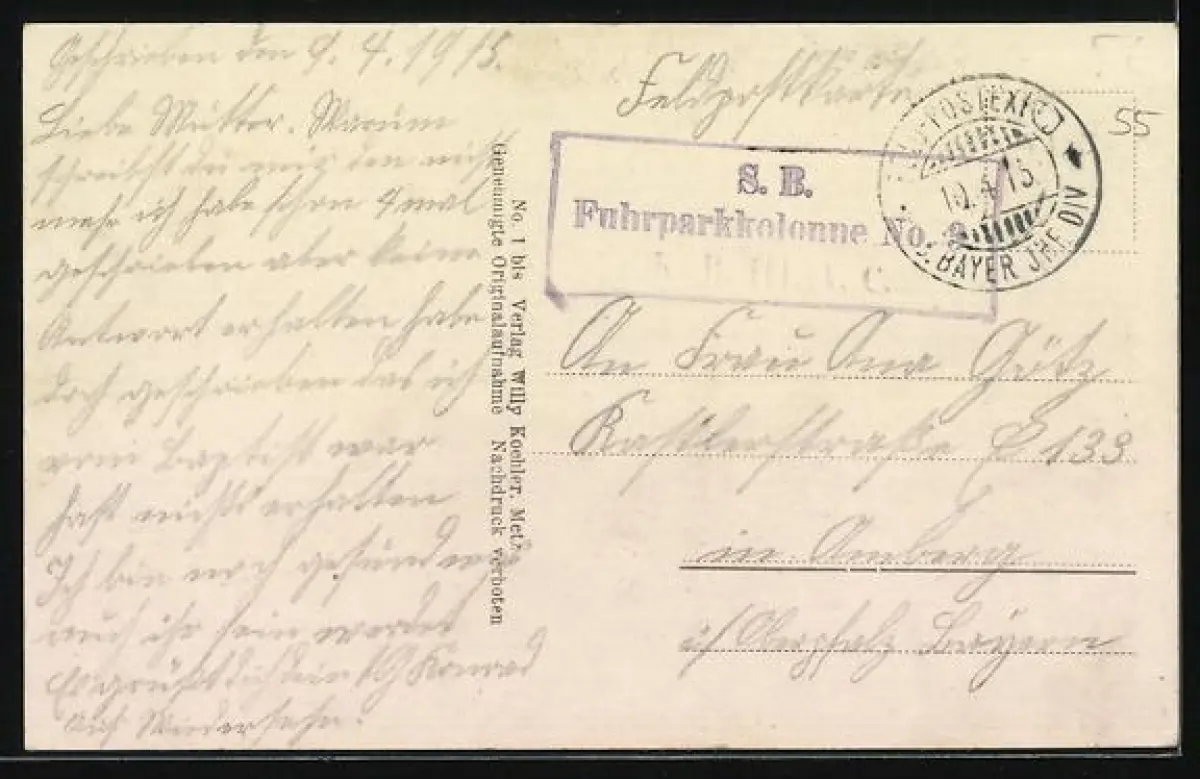 Geschrieben den 9. 4. 1915.
Liebe Mutter. Warum
schreibst du mir den nicht
mehr ich habe schon 4 mal
geschrieben aber keine
Antwort erhalten habe
doch geschrieben das ich
beim Baptist war
hast nichts erhalten
Ich bin noch gesund was
auch ihr sein werdet
Es grüßt dich dein Konrad
Auf Wiedersehn.
No. 1 bis Verlag Willy Koehler. Metz
Genehmigte Originalaufnahme Nachdruck verboten
Feldpostkarte
S. B.
Fuhrparkkolonne No.
10.4.15
BAYER JNF DIV
55
An Frau Ana Götz
Kastlerstraße E 133
in Amberg
Oberpfalz Bayern